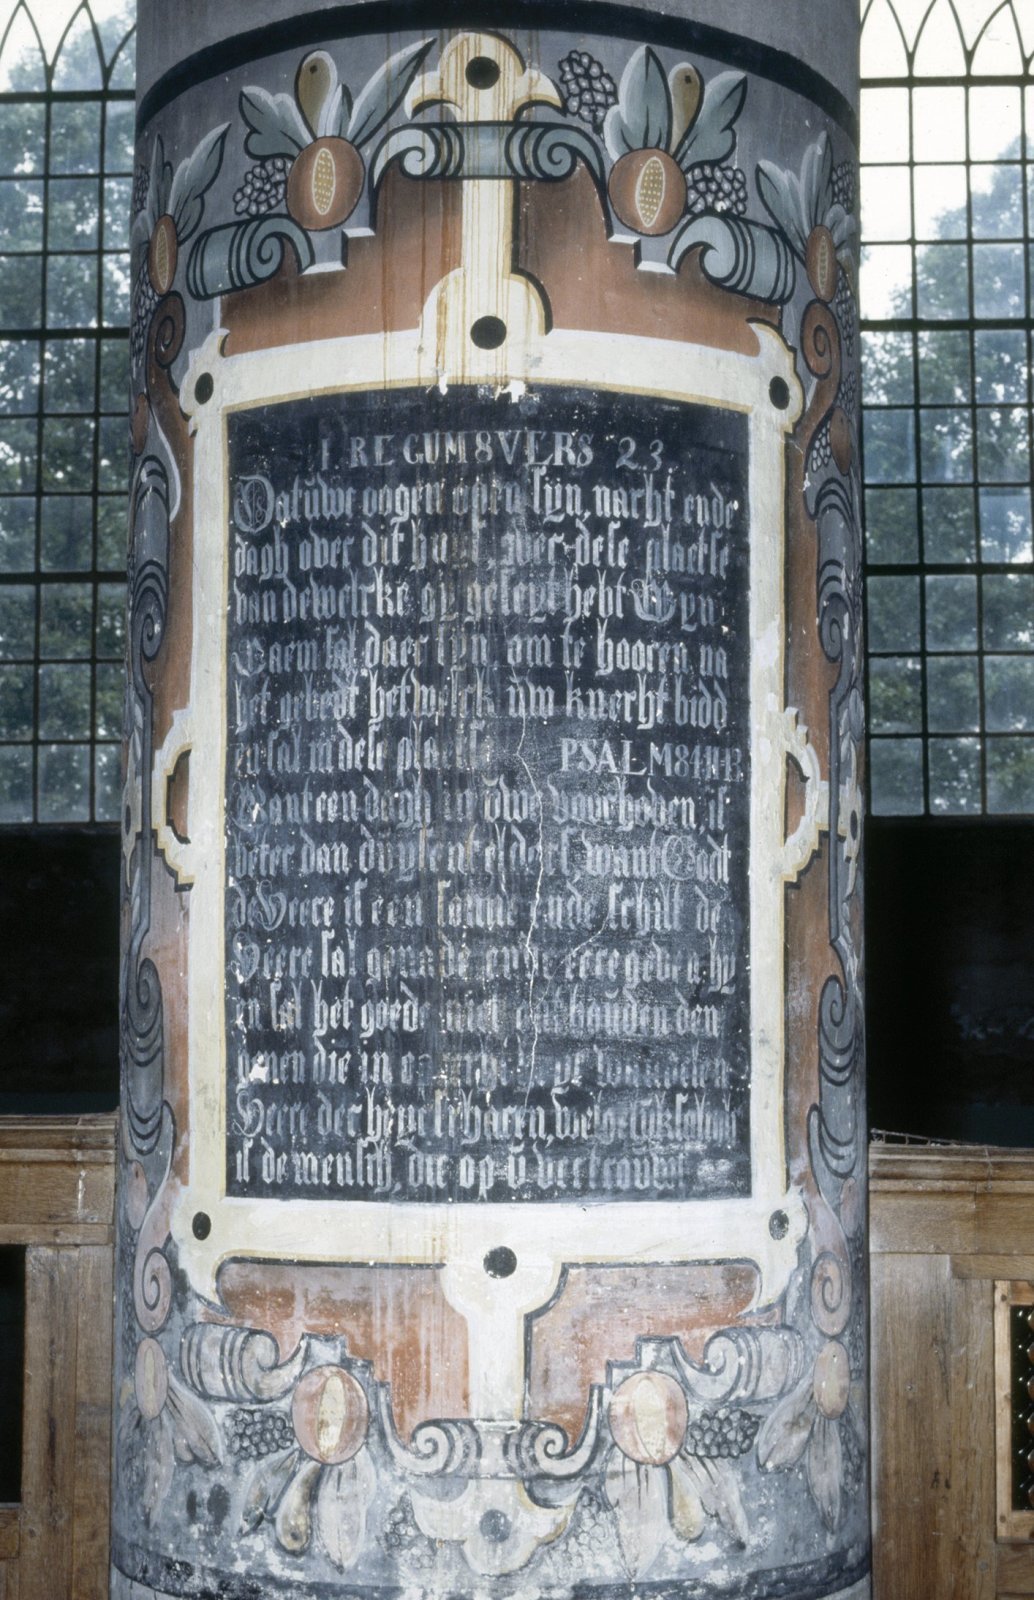 1. REGUM 8 VERS 23.
Dat uwe oogen open sijn, nacht ende
dagh over dit huis, over dese plaetse
van dewelcke gij geseyt hebt Mijn
Naem sal daer sijn, om te hooren na
het gebedt hetwelck uw knecht bidd
en sal in dese plaetse PSALM 84
Want een dagh in uwe voorhoven, is
beter dan duysent elders, want Godt
de Heere is een sonne ende schilt de
Heere sal genade ende eere geven hy
en sal het goede niet onthouden den
genen die in oprechtigheyt wandelen
Heere der heyrscharen, welgelucksaligh
is de mensch, die op u vertrouwt